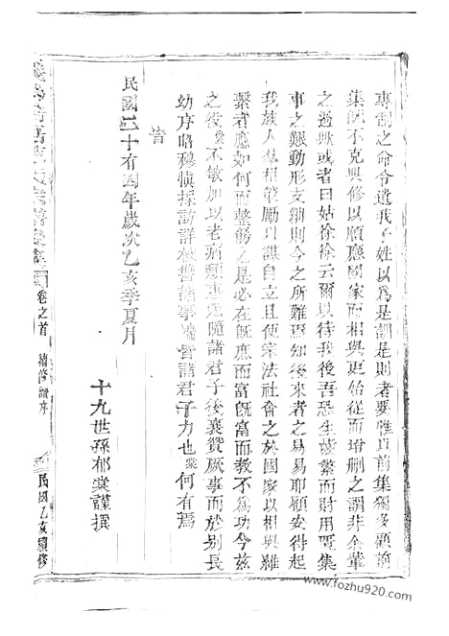 專制之命令遺我子姓以為是謂是則者要唯真前集獨多顧前
集既不克與修以順應國家而相與更始從而增刪之謂非余輩
之過歟或者曰姑徐徐云爾以待我後吾恐生齒繁而財用
事之艱動形支絀則今之所難焉知後來者之易易耶顧安得起
我族人羣相策勵以謀自立且使宗法社會之於國家以相與維
繫者應如何而整飭之是必在既庶而富既富而教不為功今茲
之後不敏加以老病隨諸君子後襄贊厥事而於別長
幼序昭穆慎採訪詳諸君子力也棠何有焉
旹
民國二十有四年歲次乙亥季夏月
十九世孫郁棠謹撰
卷之首 續修譜序
民國乙亥續修
www.fozhu920.com